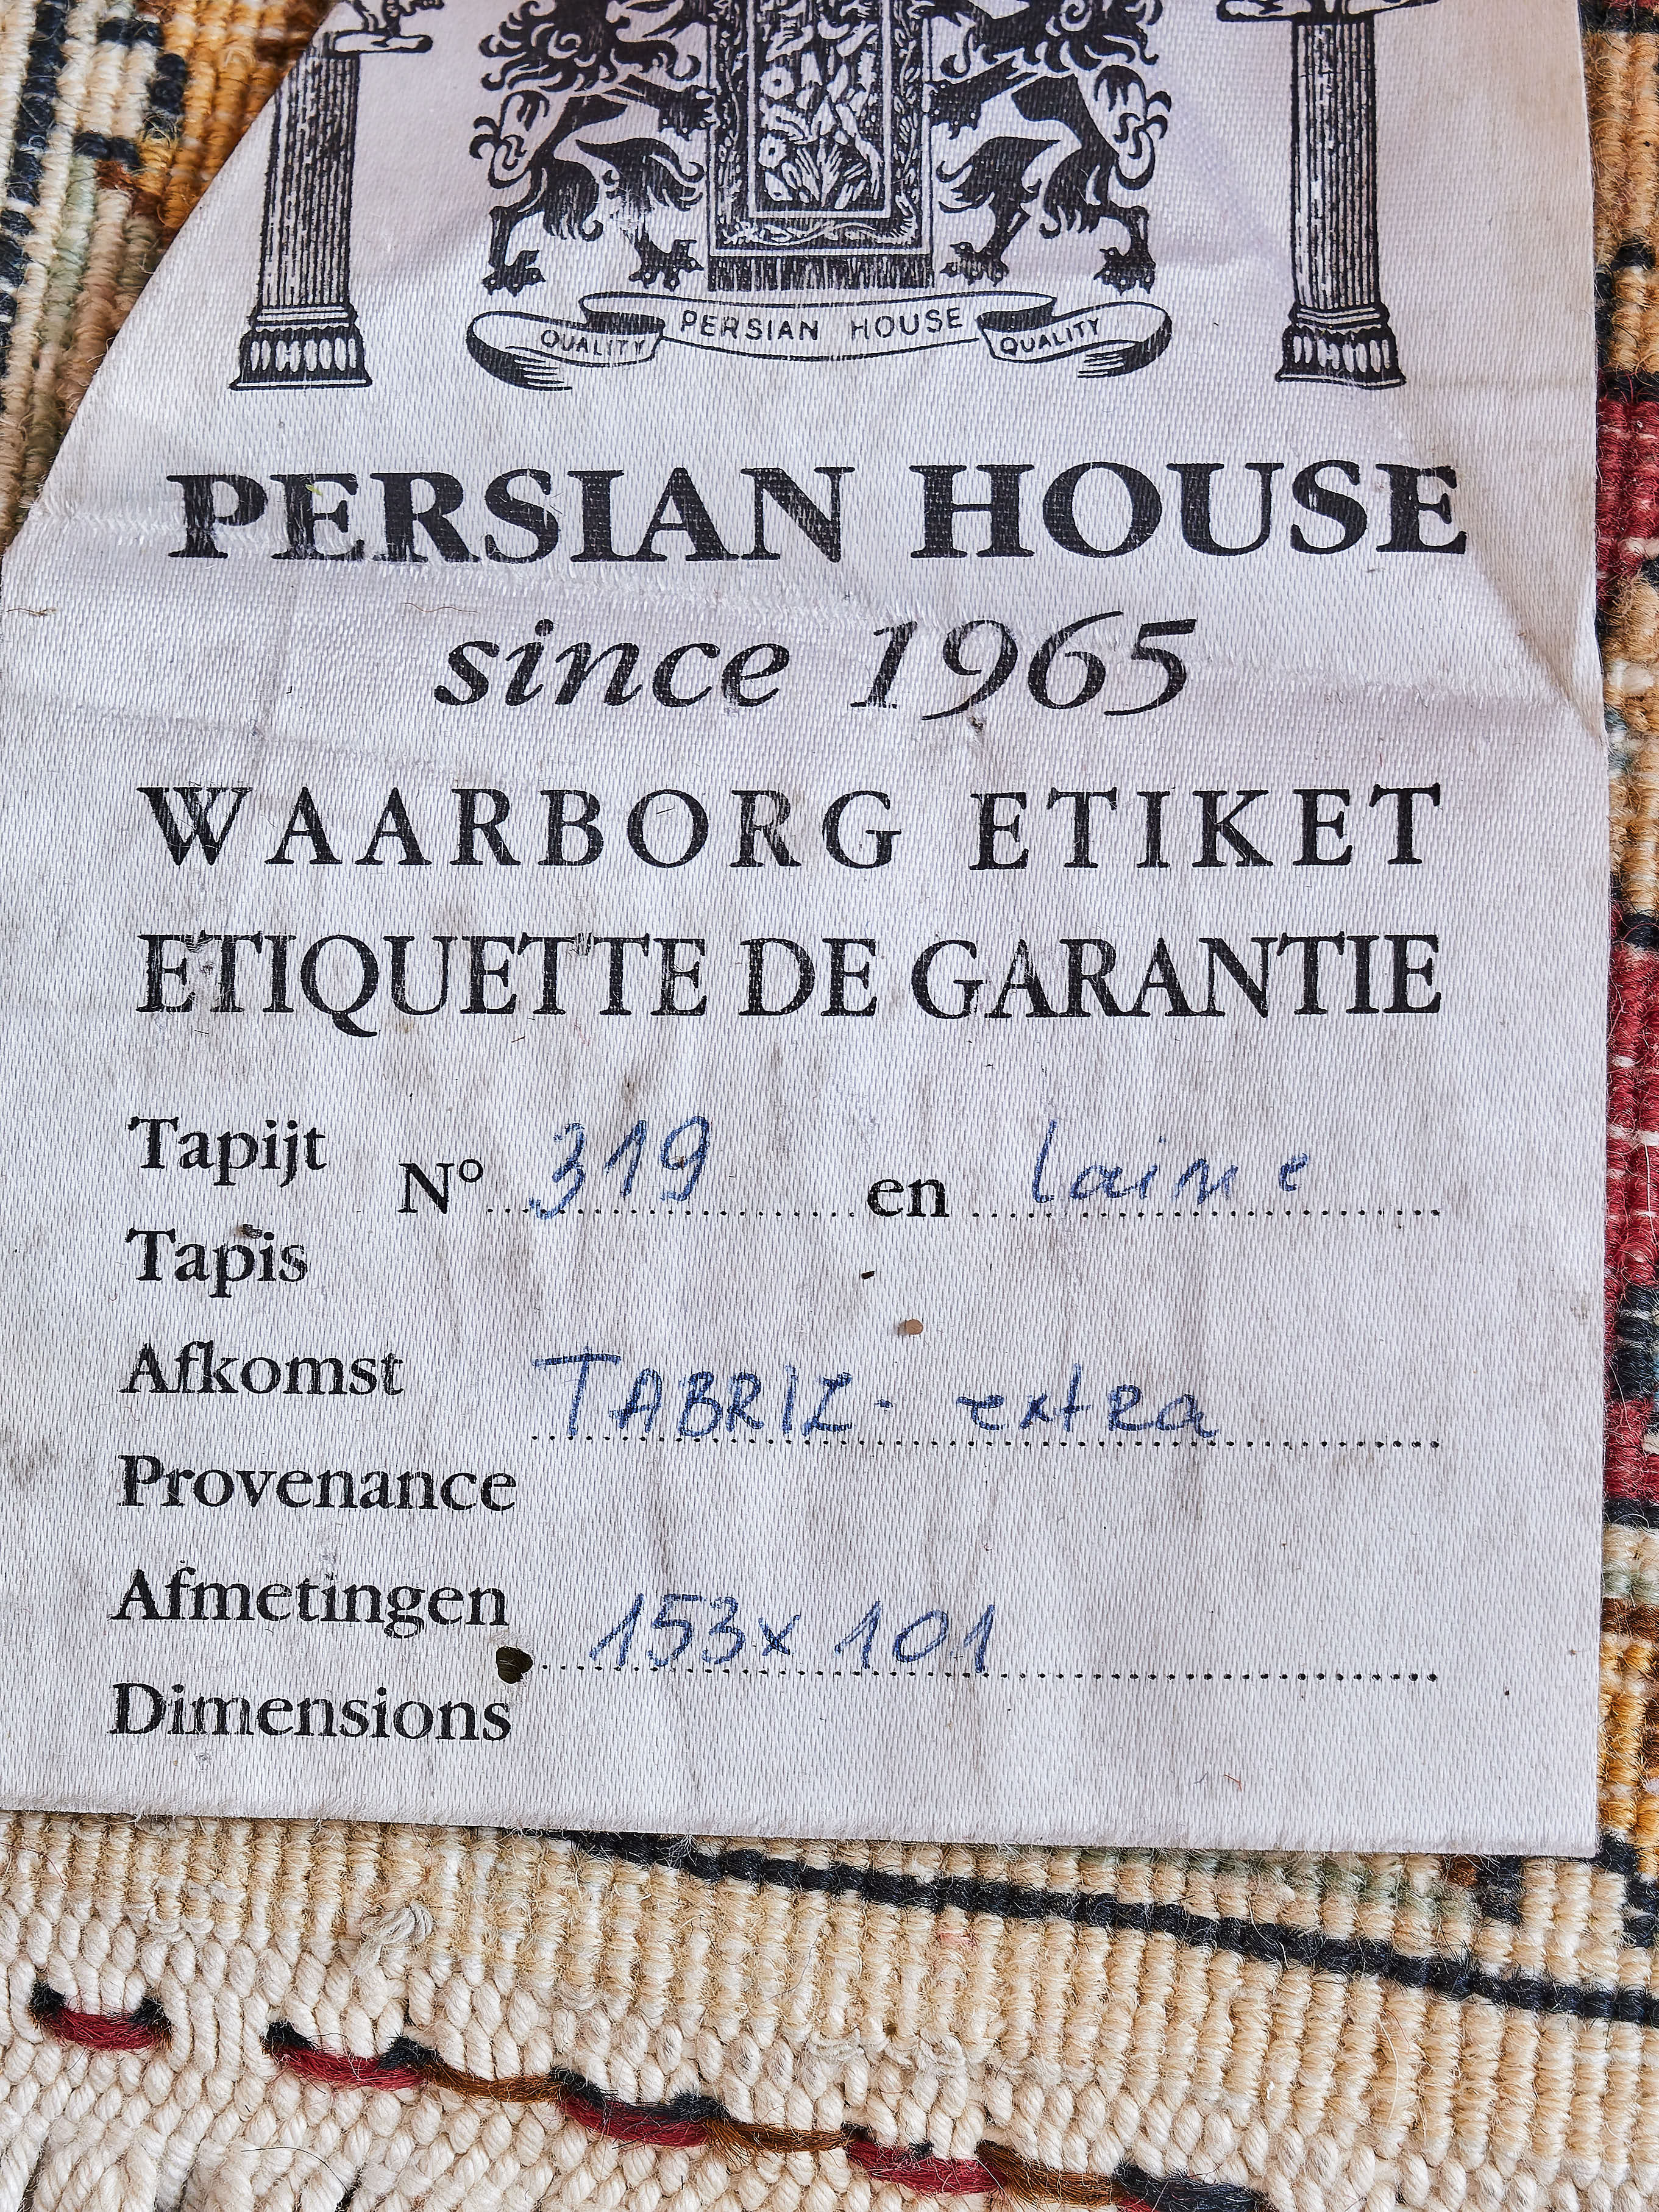 QUALITY PERSIAN HOUSE QUALITY
PERSIAN HOUSE
since 1965
WAARBORG ETIKET
ETIQUETTE DE GARANTIE
Tapijt
N° 319 en laine
Tapis
Afkomst
TABRIZ. extra
Provenance
Afmetingen
153x101
Dimensions